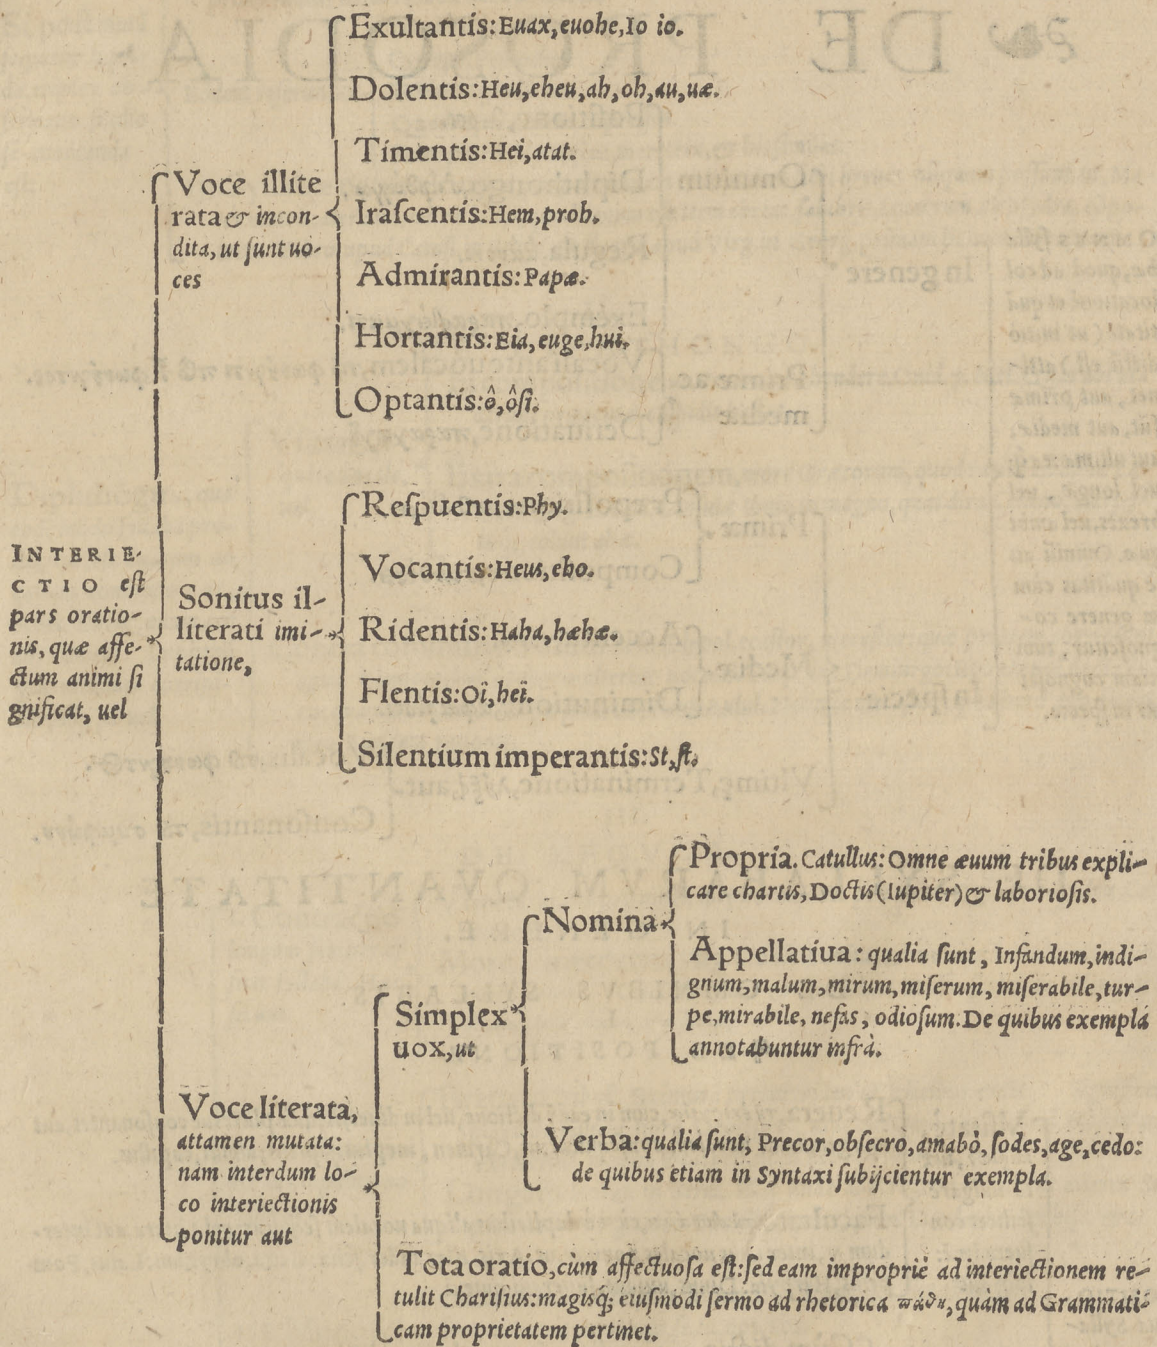 INTERIE-
CTIO eſt
pars oratio-
nis, quæ affe-
ctum animi ſi
gnificat, uel
Voce illite
rata & incon-
dita, ut ſunt uo-
ces
Exultantis: Euax, euohe, Io io.
Dolentis: Heu, eheu, ah, oh, au, uæ.
Timentis: Hei, atat.
Iraſcentis: Hem, proh.
Admirantis: Papæ.
Hortantis: Eia, euge, hui.
Optantis: ô, ôſi.
Sonitus il-
literati imi-
tatione,
Reſpuentis: Phy.
Vocantis: Heus, eho.
Ridentis: Haha, hæhæ.
Flentis: Oî, heî.
Silentium imperantis: St, ſt.
Voce literata,
attamen mutata:
nam interdum lo-
co interiectionis
ponitur aut
Simplex
uox, ut
Nomina
Propria. Catullus: Omne æuum tribus expli-
care chartis, Doctis (Iupiter) & laborioſis.
Appellatiua: qualia ſunt, Infandum, indi-
gnum, malum, mirum, miſerum, miſerabile, tur-
pe, mirabile, nefas, odioſum. De quibus exempla
annotabuntur infrà.
Verba: qualia ſunt, Precor, obſecrò, amabò, ſodes, age, cedo:
de quibus etiam in Syntaxi ſubijcientur exempla.
Tota oratio, cùm affectuoſa eſt: ſed eam impropriè ad interiectionem re-
tulit Chariſius: magisq́; eiuſmodi ſermo ad rhetorica πάθη, quàm ad Grammati-
cam proprietatem pertinet.